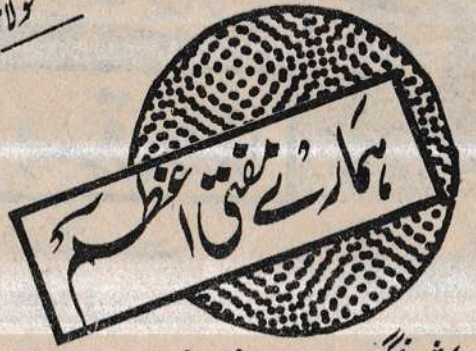 ہمارے مفتی اعظمؒ